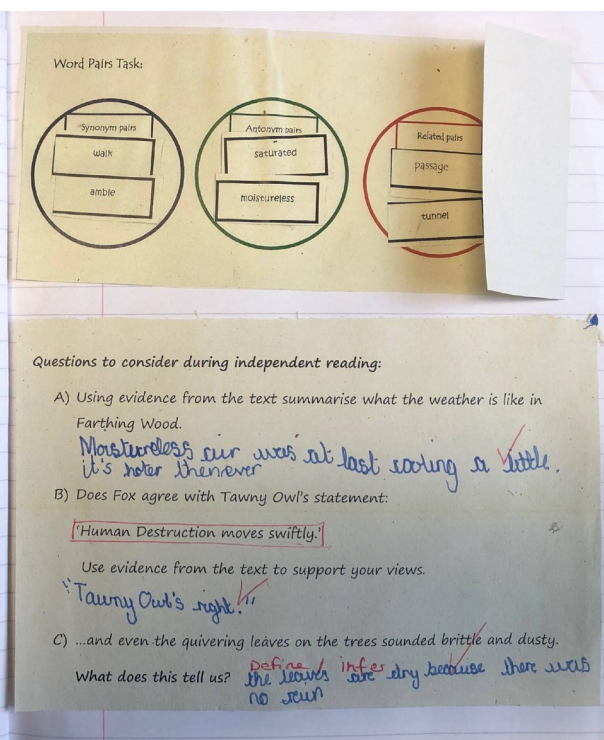 Word Pairs Task:
Synonym pairs
walk
amble
Antonym pairs
saturated
moistureless
Related pairs
passage
tunnel
Questions to consider during independent reading:
A) Using evidence from the text summarise what the weather is like in
Farthing Wood.
Moistureless air was at last cooling a little.
it's hoter then ever
B) Does Fox agree with Tawny Owl's statement:
'Human Destruction moves swiftly.'
Use evidence from the text to support your views.
"Tawny Owl's right."
C) ...and even the quivering leaves on the trees sounded brittle and dusty.
Define / infer
What does this tell us? the leaves are dry because there was
no rain